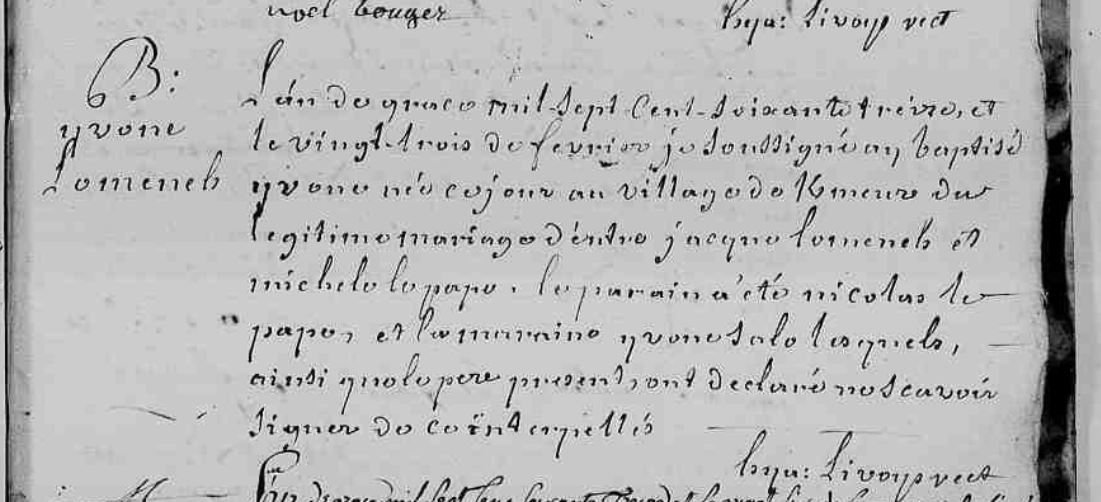 noel bouger
hya: Livoys rect
B:
yvone
Lomeneh
L'an de grace mil-sept-Cent-Soixante treize, et
le vingt-trois de fevrier je Soussigné ay baptisé
yvone née ce jour au village de Kmeur du
legitime mariage d'entre jacque lomeneh et
michele le pape. le parain a été nicolas le
pape, et la maraine yvone Salo lesquels,
ainsi que le pere present ont declaré ne Scavoir
Signer de ce interpellés
hya: Livoys rect
L'an de grace mil Sept Cent Soixante treize et le vingt